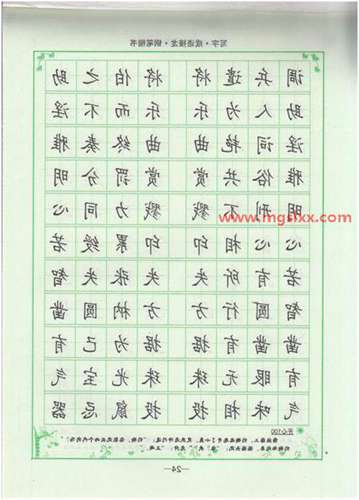 写字·成语接龙·钢笔楷书
调兵遣将 将伯之助
助人为乐 乐而不淫
淫词艳曲 曲终奏雅
雅俗共赏 赏罚分明
明刑不戮 戮力同心
www.mgslxx.com
心心相印 印累绶若
若有所失 失张失智
智圆行方 方枘圆凿
凿凿有据 据为己有
有眼无珠 珠光宝气
气味相投 投鼠忌器
开心100
—24—